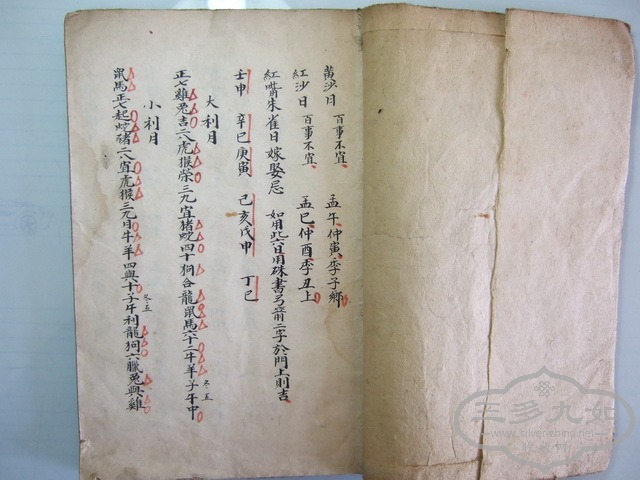 黃沙日 百事不宜 孟午仲寅季子鄉
紅沙日 百事不宜 孟巳仲酉季丑上
紅嘴朱雀日 嫁娶忌 如用此日用硃書弓箭二字於門上則吉
壬申 辛巳 庚寅 己亥 戊申 丁巳
大利月
正七雞兔吉二八虎猴榮三九宜猪蛇四十狗合龍鼠馬六十二牛羊子午申 冬五
小利月
鼠馬正七起蛇猪二八宜虎猴三九月牛羊四與十子午利龍狗六臘兔與雞 冬五
三多九如
www.silverchina.net